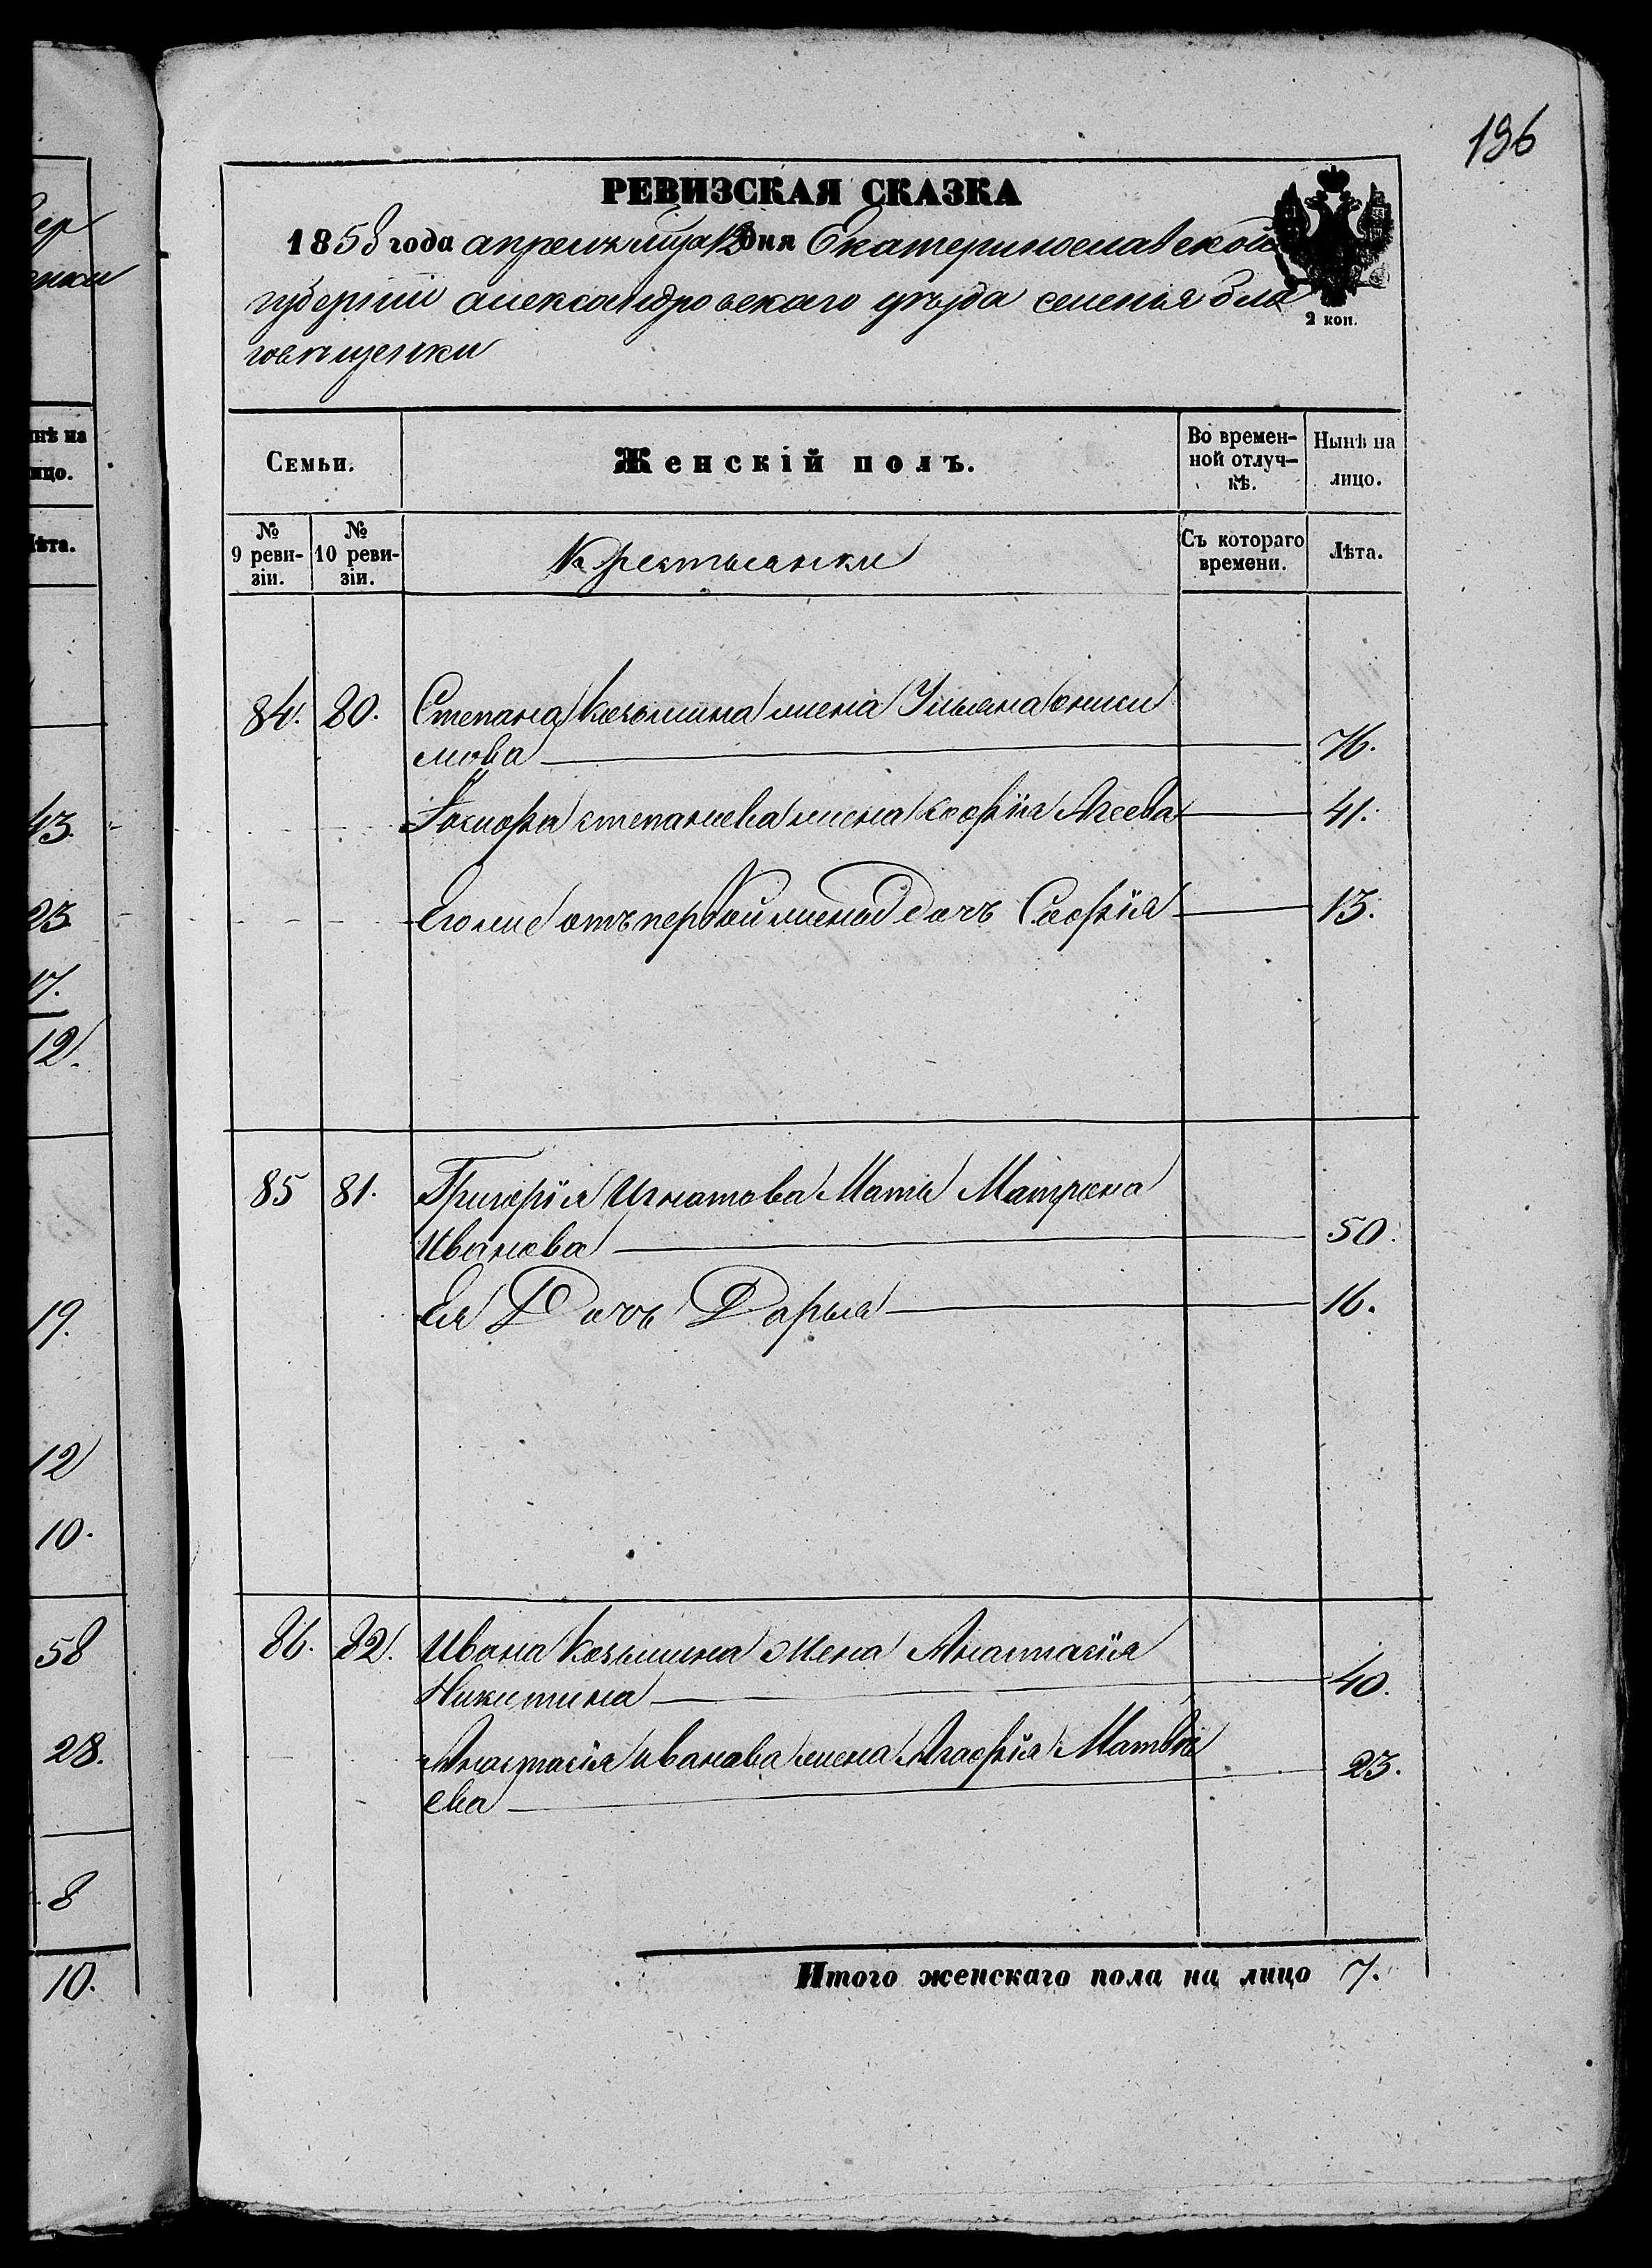 196
РЕВИЗСКАЯ СКАЗКА
1858 года апреля мца 12 дня Екатеринославской
губернии александровскаго уъзда селенья бла
говѣщенки
2 коп.
Семьи.
Женскій полъ.
Во времен-
ной отлуч-
кѣ.
Нынѣ на
лицо.
№
9 реви-
зіи.
№
10 реви-
зіи.
Крестьянки
Съ котораго
времени.
Лѣта.
84. 80. Степана Козьмина жена Ульяна
мова 76.
степанова жена Софія Агеева 41.
Его же отъ первой жены дочь Софія 13.
85 81. Григорія Игнатова Мать Матрона
Иванова 50.
Ея Дочь Дарья 16.
86. 82. Ивана Козьмина жена Анастасія
Никитина 40.
Анастасія иванова жена Агафія Матвѣ
ева 23.
Итого женскаго пола на лицо 7.
нѣ на
ицо.
ѣта.
43.
23
17.
12.
19.
12
10.
58
28.
8
10.